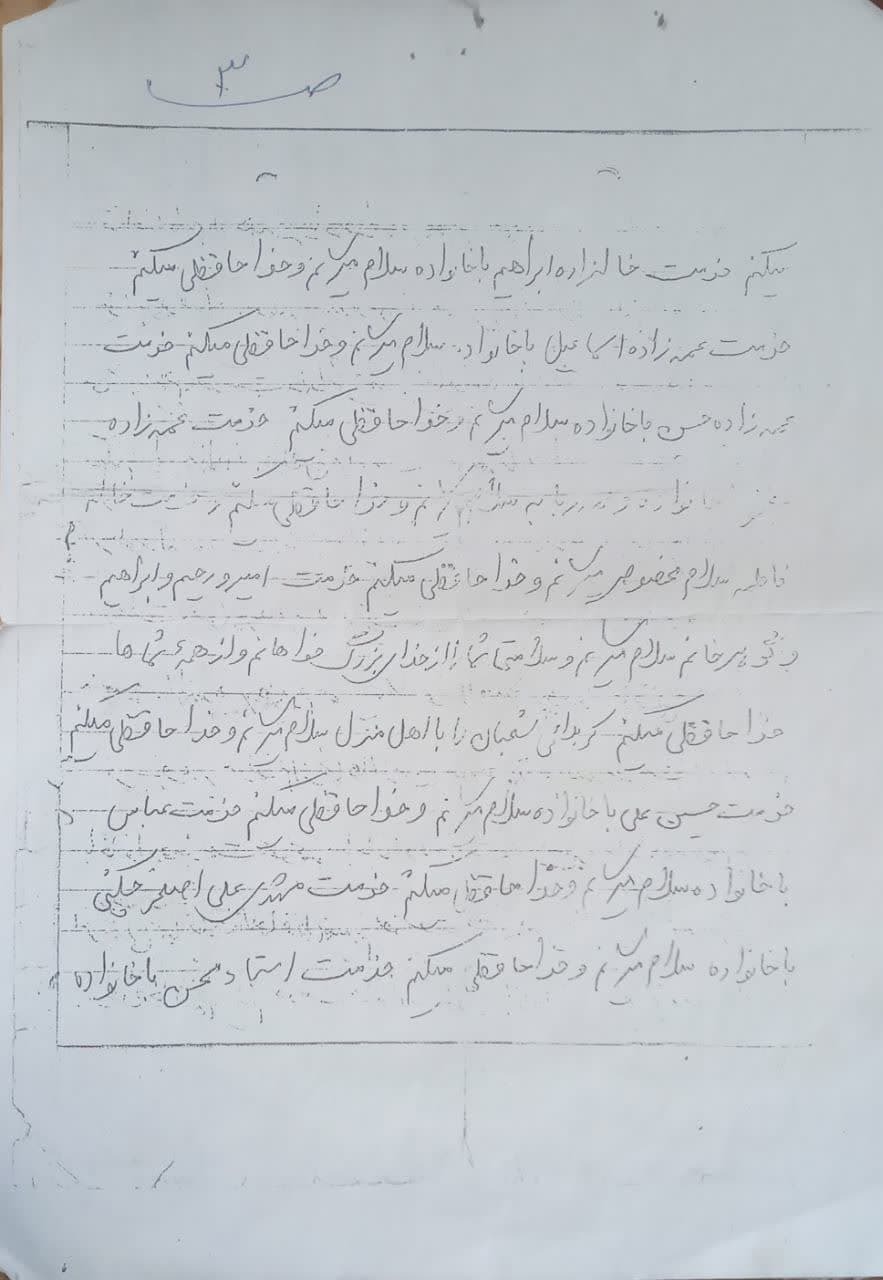 ص ۳
میکنم خدمت خالزاده ابراهیم باخانواده سلام میرسانم و خدا حافظی میکنم
خدمت عمه زاده اسماعیل باخانواده سلام میرسانم و خدا حافظی میکنم خدمت
عمه زاده حسن باخانواده سلام میرسانم و خدا حافظی میکنم خدمت عمه زاده
سلام میرسانم و خدا حافظی میکنم و خدمت خاله
فاطمه سلام مخصوص میرسانم و خدا حافظی میکنم خدمت امیر و رحیم و ابراهیم
و گوهر خانم سلام میرسانم و سلامتی شما را از خدای بزرگ خواهانم و از همهٔ شما ها
خدا حافظی میکنم کربلائی شعبان را با اهل منزل سلام میرسانم و خدا حافظی میکنم
خدمت حسین علی با خانواده سلام میرسانم و خدا حافظی میکنم خدمت عباس
با خانواده سلام میرسانم و خدا حافظی میکنم خدمت مهدی علی اصغر
با خانواده سلام میرسانم و خدا حافظی میکنم خدمت استاد محسن با خانواده